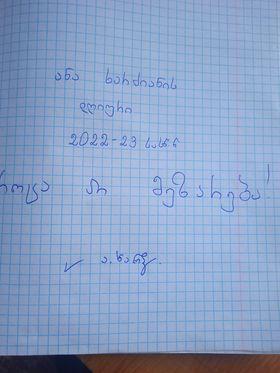 ანა ხარძიანის
დღიური
2022-23 სას.წ
როცა არ მეზარება!
✓ ა.ხარძ.